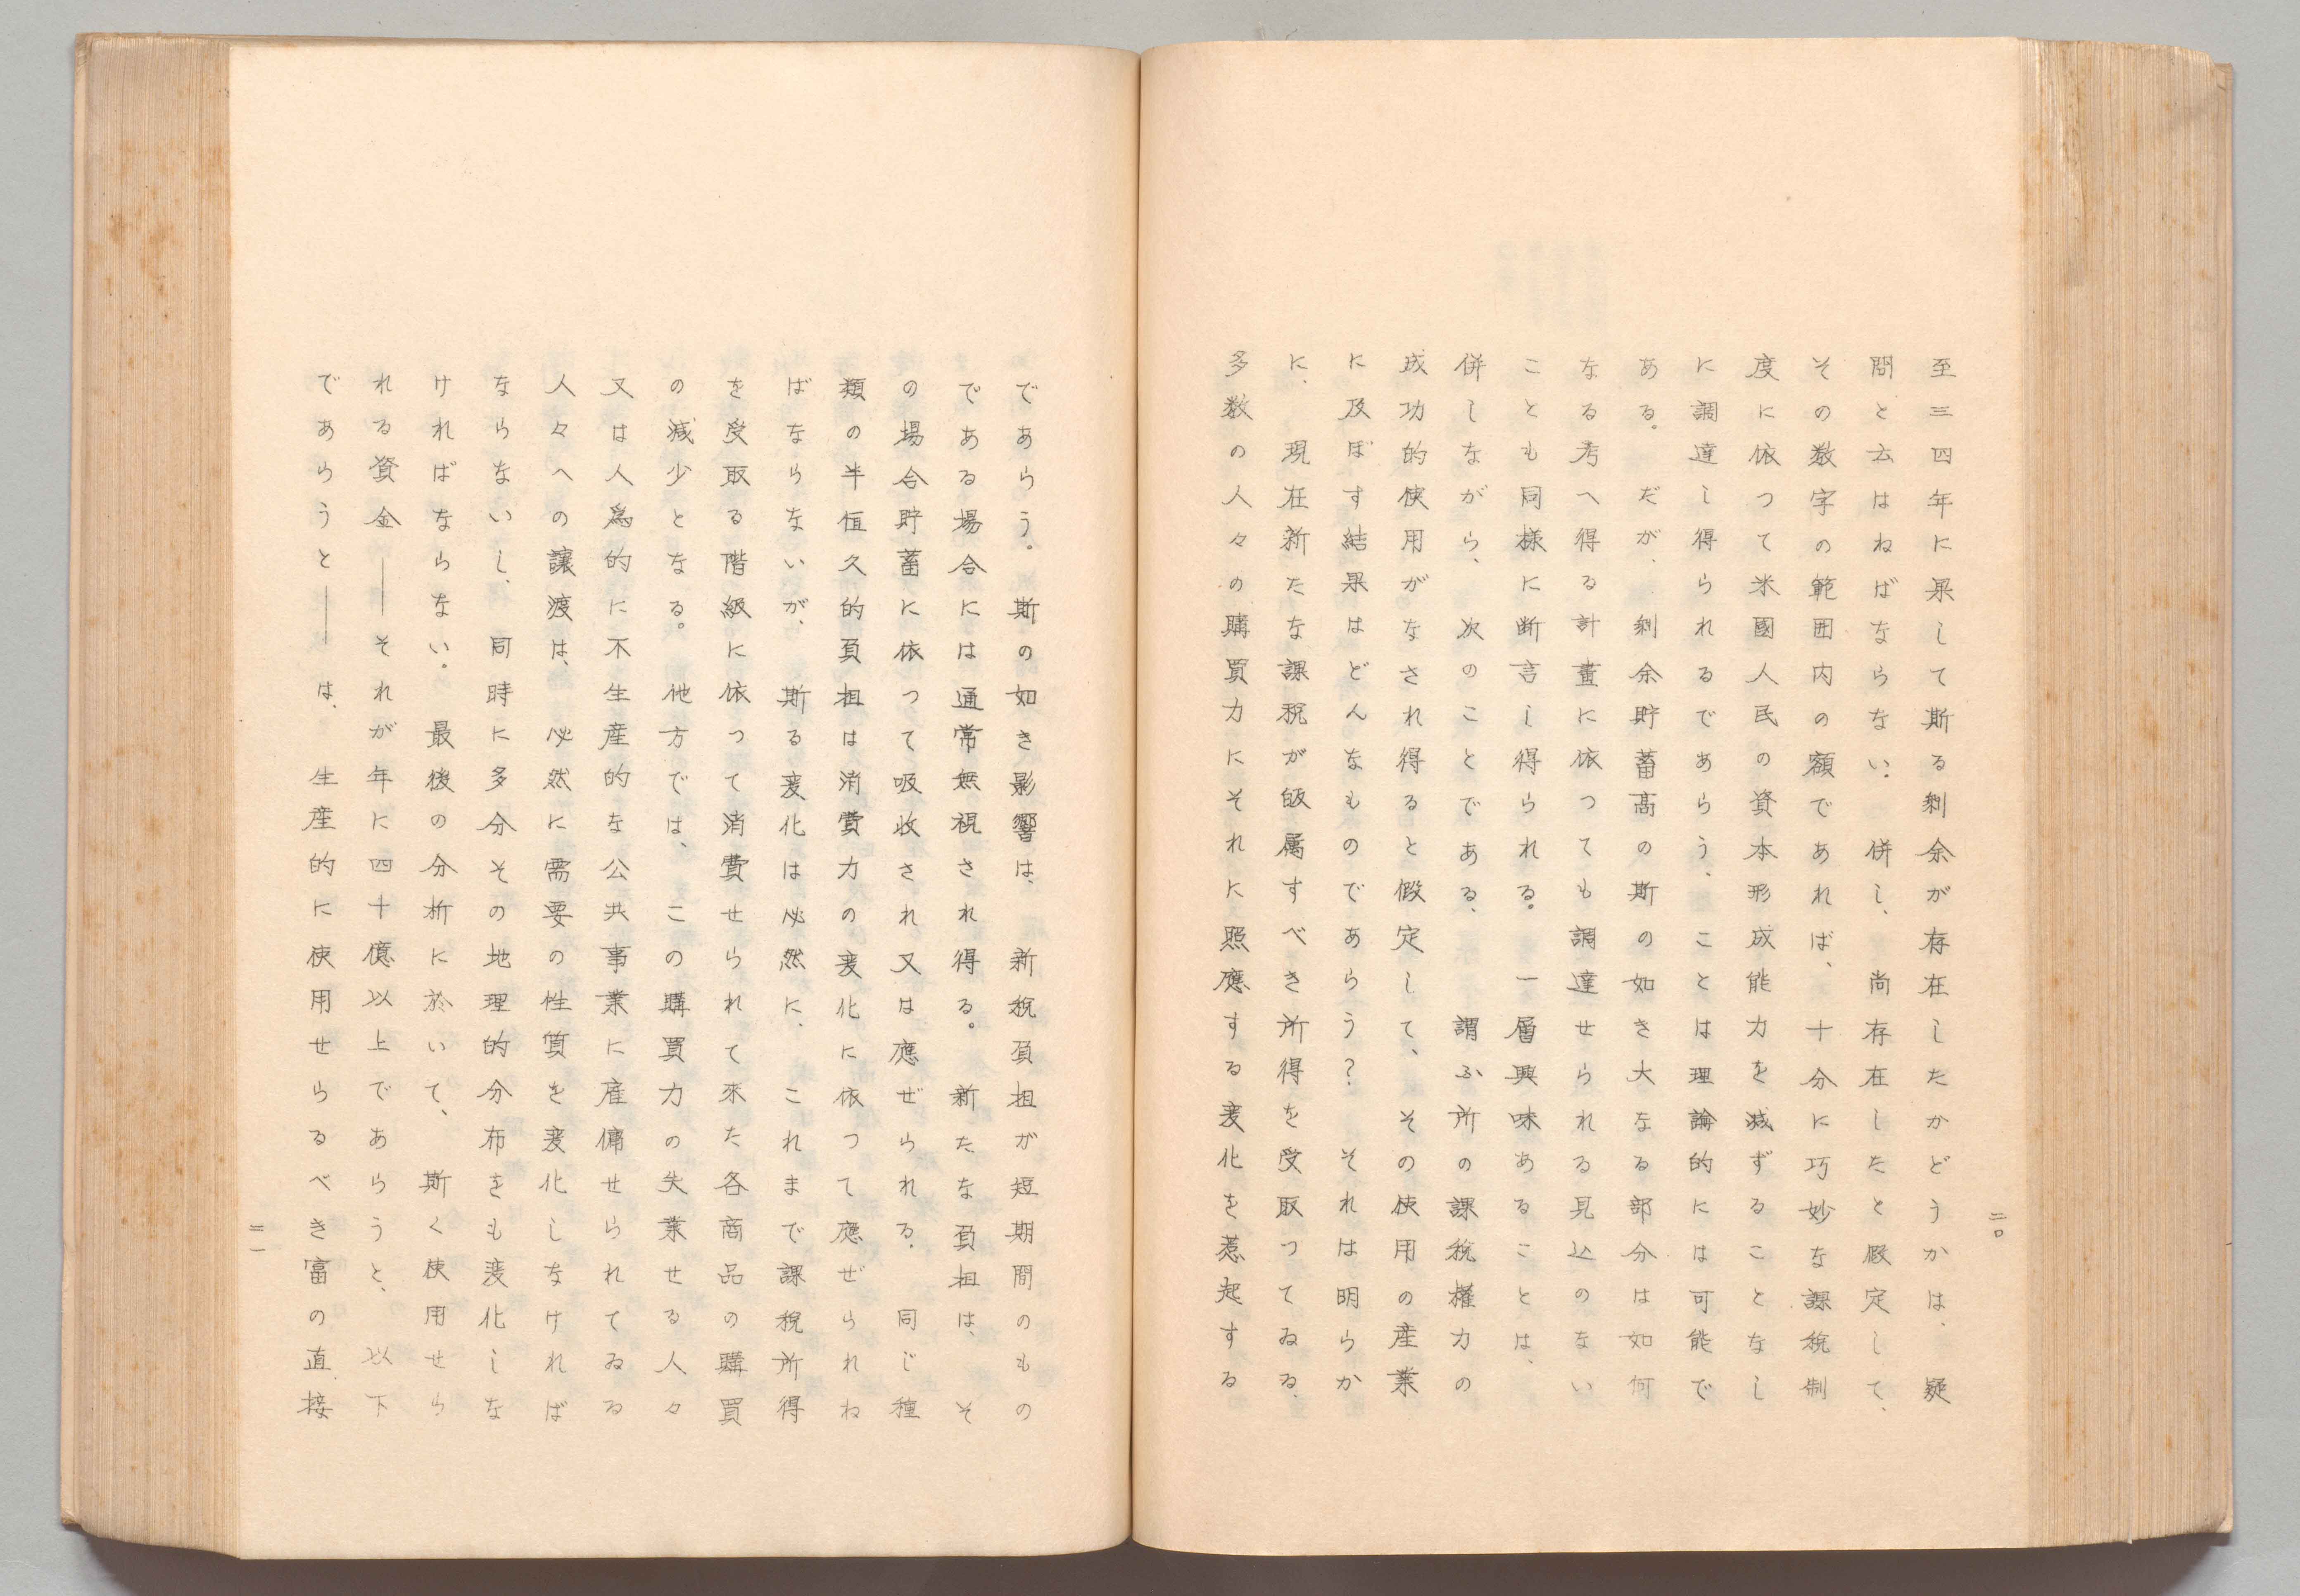 二〇
至三四年に果して斯る剰余が存在したかどうかは、疑
問と云はねばならない。併し、尚存在したと假定して、
その数字の範囲内の額であれば、十分に巧妙な課税制
度に依つて米國人民の資本形成能力を減ずることなし
に調達し得られるであらう、ことは理論的には可能で
ある。だが、剰余貯蓄高の斯の如き大なる部分は如何
なる考へ得る計畫に依つても調達せられる見込のない
ことも同様に断言し得られる。一層興味あることは、
併しながら、次のことである、謂ふ所の課税權力の
成功的使用がなされ得ると假定して、その使用の産業
に及ぼす結果はどんなものであらう?それは明らか
に、現在新たな課税が皈属すべき所得を受取つてゐる、
多数の人々の購買力にそれに照應する変化を惹起する
であらう。斯の如き影響は、新税負担が短期間のもの
である場合には通常無視され得る。新たな負担は、そ
の場合貯蓄に依つて吸收され又は應ぜられる。同じ種
類の半恒久的負担は消費力の変化に依つて應ぜられね
ばならないが、斯る変化は必然に、これまで課税所得
を受取る階級に依つて消費せられて來た各商品の購買
の減少となる。他方では、この購買力の失業せる人々
又は人爲的に不生産的な公共事業に産傭せられてゐる
人々への讓渡は、必然に需要の性質を変化しなければ
ならないし、同時に多分その地理的分布をも変化しな
ければならない。最後の分析に於いて、斯く使用せら
れる資金――それが年に四十億以上であらうと、以下
であらうと――は、生産的に使用せらるべき富の直接
二一